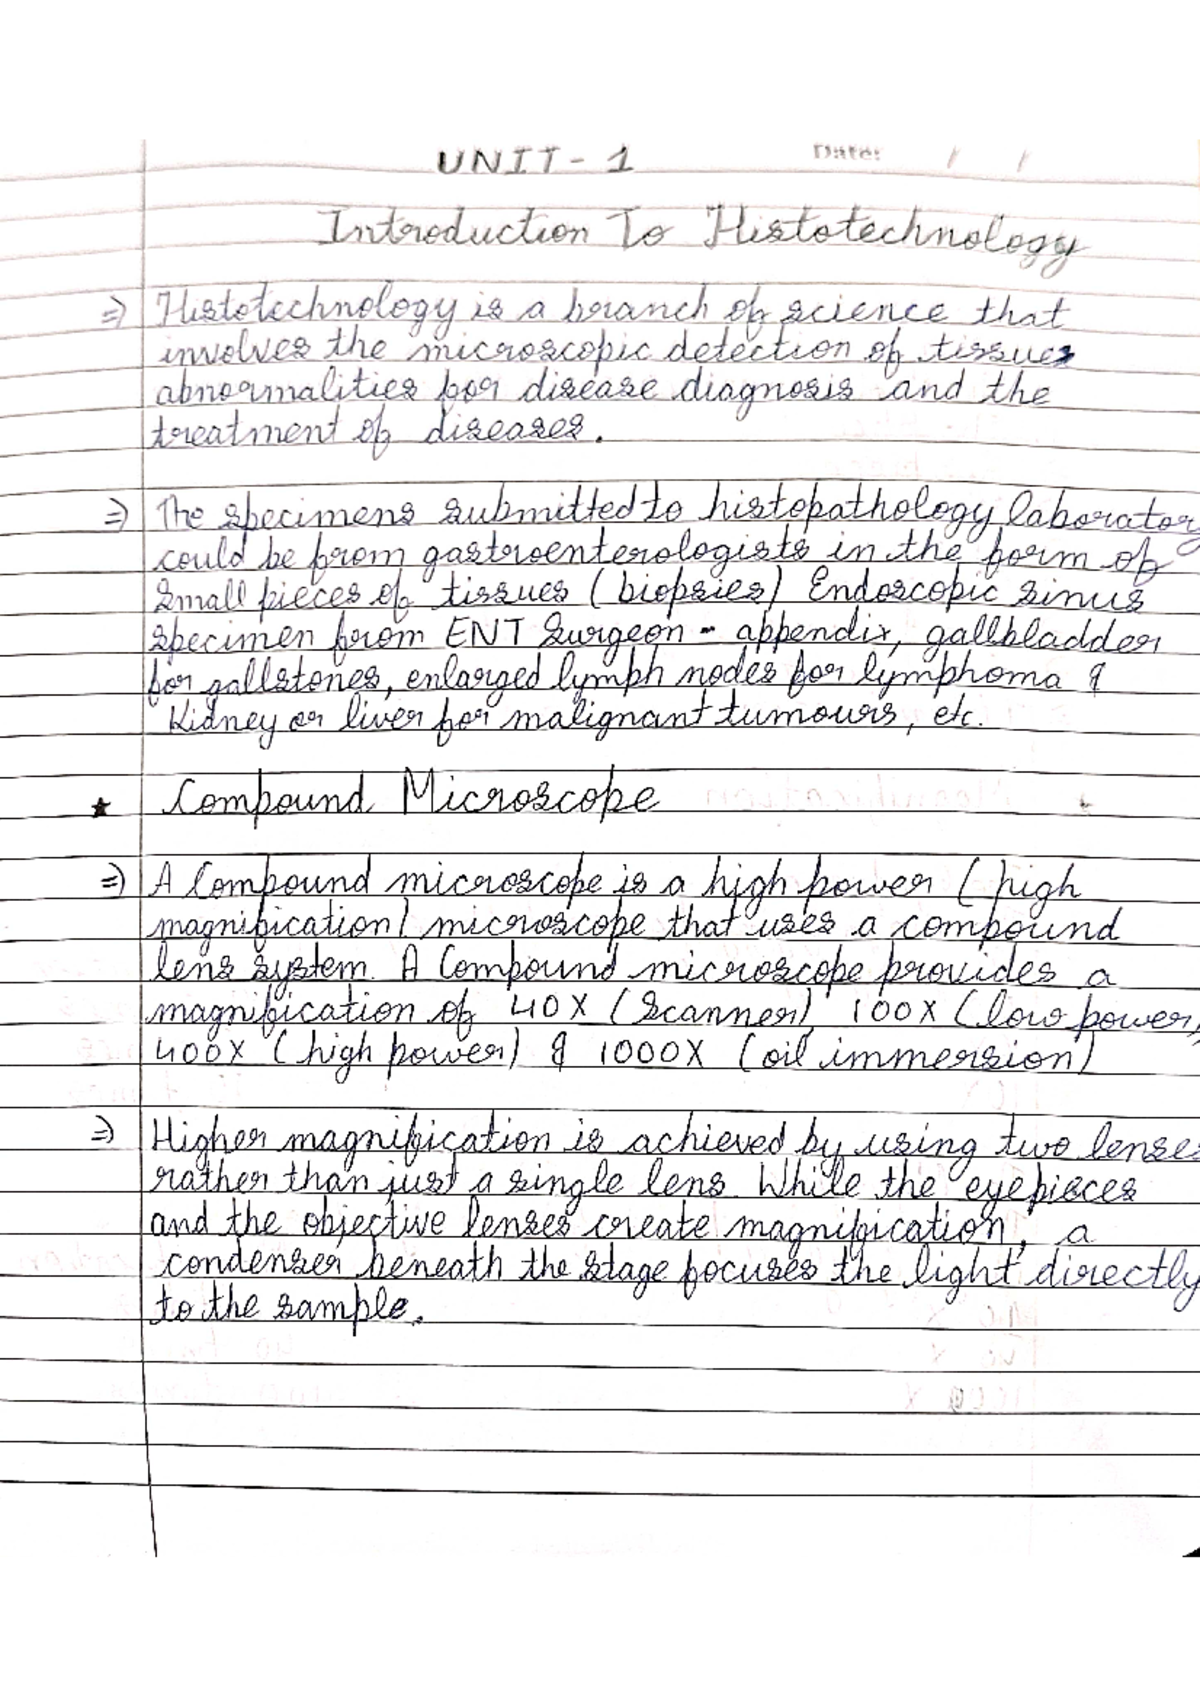 UNIT - 1
Date: / /
Introduction To Histotechnology
=) Histotechnology is a branch of science that
involves the microscopic detection of tissues
abnormalities for disease diagnosis and the
treatment of diseases.
=) The specimens submitted to histopathology laborator
could be from gastroenterologists in the form of
small pieces of tissues (biopsies) Endoscopic sinus
specimen from ENT Surgeon - appendix, gallbladder
for gallstones, enlarged lymph nodes for lymphoma &
Kidney or liver for malignant tumours, etc.
★ Compound Microscope
=) A Compound microscope is a high power (high
magnification) microscope that uses a compound
lens system. A Compound microscope provides a
magnification of 40X (Scanner), 100X (low power,
400X (high power) & 1000X (oil immersion)
=) Higher magnification is achieved by using two lenses
rather than just a single lens. While the eyepieces
and the objective lenses create magnification, a
condenser beneath the stage focuses the light directly
to the sample.